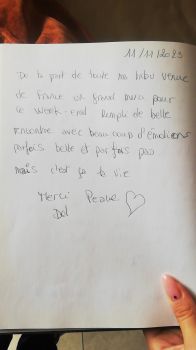 11/11/2023
De la part de toute ma tribu venue
de France un grand merci pour
ce week-end rempli de belle
rencontre avec beaucoup d'émotions
parfois belle et parfois pas
mais c'est ça la vie
Merci